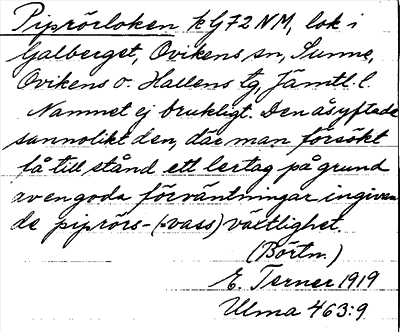 Piprörloken kG72 NM, lok i
Galberget, Ovikens sn, Sunne,
Ovikens o. Hallens tg, Jämtl. l.
Namnet ej brukligt. Den åsyftade
sannolikt den, där man försökt
få till stånd ett lertag på grund
av en goda förväntningar ingivan
de piprörs-(=vass) växtlighet.
(Börtn.)
E. Terner 1919
Ulma 463:9